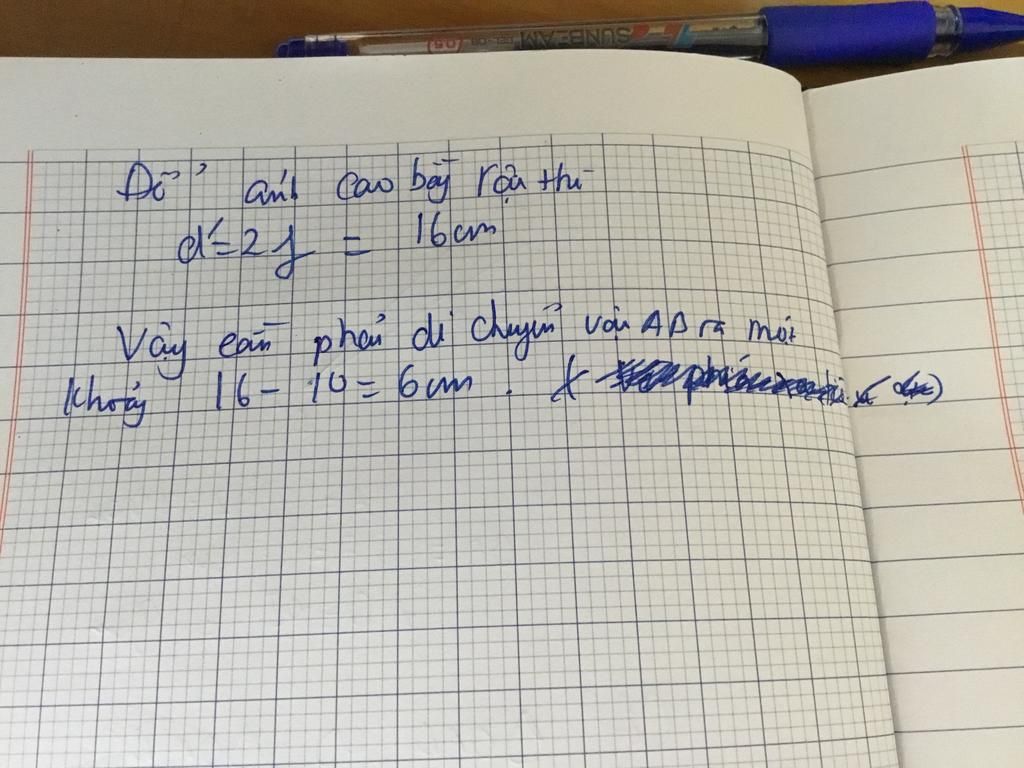 SUNBEAM
Để ảnh cao bằng vật thì
d'=2f = 16cm
Vậy cần phải di chuyển vật AB ra một
khoảng 16 - 10 = 6cm.